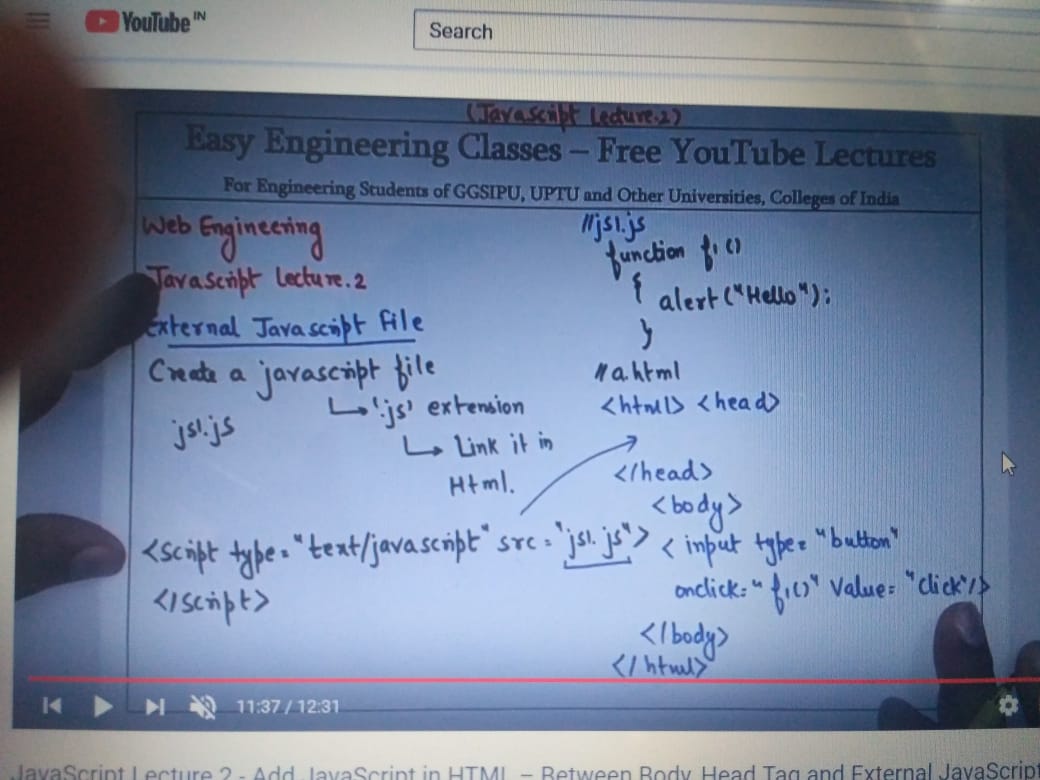 YouTube IN
Search
(JavaScript Lecture.2)
Easy Engineering Classes – Free YouTube Lectures
For Engineering Students of GGSIPU, UPTU and Other Universities, Colleges of India
Web Engineering
JavaScript Lecture.2
External Javascript File
Create a javascript file
↳ '.js' extension
js1.js
↳ Link it in
Html.
<script type="text/javascript" src="js1.js">
</script>
//js1.js
function f1()
{ alert("Hello");
}
//a.html
<html> <head>
</head>
<body>
<input type="button"
onclick="f1()" Value="click"/>
</body>
</html>
11:37 / 12:31
JavaScript Lecture 2 - Add JavaScript in HTML – Between Body, Head Tag and External JavaScript